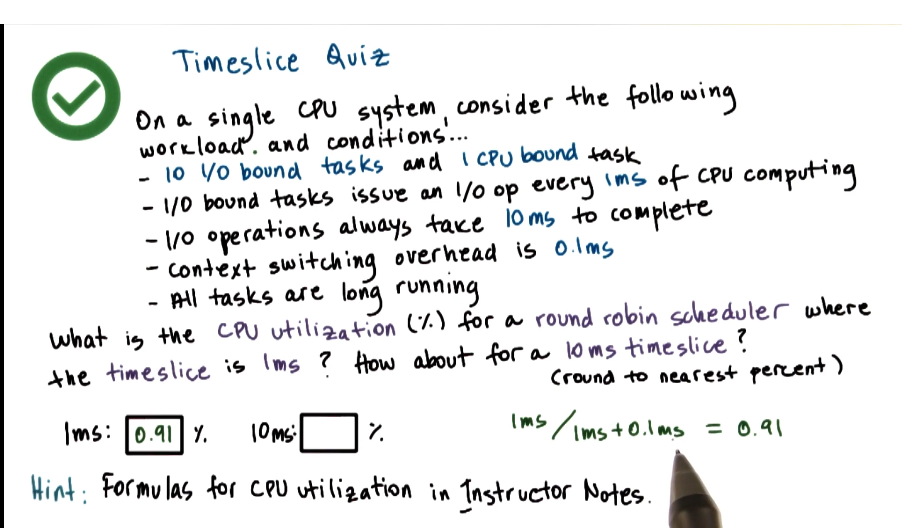 Timeslice Quiz
On a single CPU system, consider the following
workload. and conditions...
- 10 I/O bound tasks and 1 CPU bound task
- I/O bound tasks issue an I/O op every 1ms of CPU computing
- I/O operations always take 10ms to complete
- context switching overhead is 0.1ms
- All tasks are long running
What is the CPU utilization (%) for a round robin scheduler where
the timeslice is 1ms? How about for a 10ms timeslice?
(round to nearest percent)
1ms: 0.91 % 10ms: %
1ms/1ms+0.1ms = 0.91
Hint: Formulas for CPU utilization in Instructor Notes.